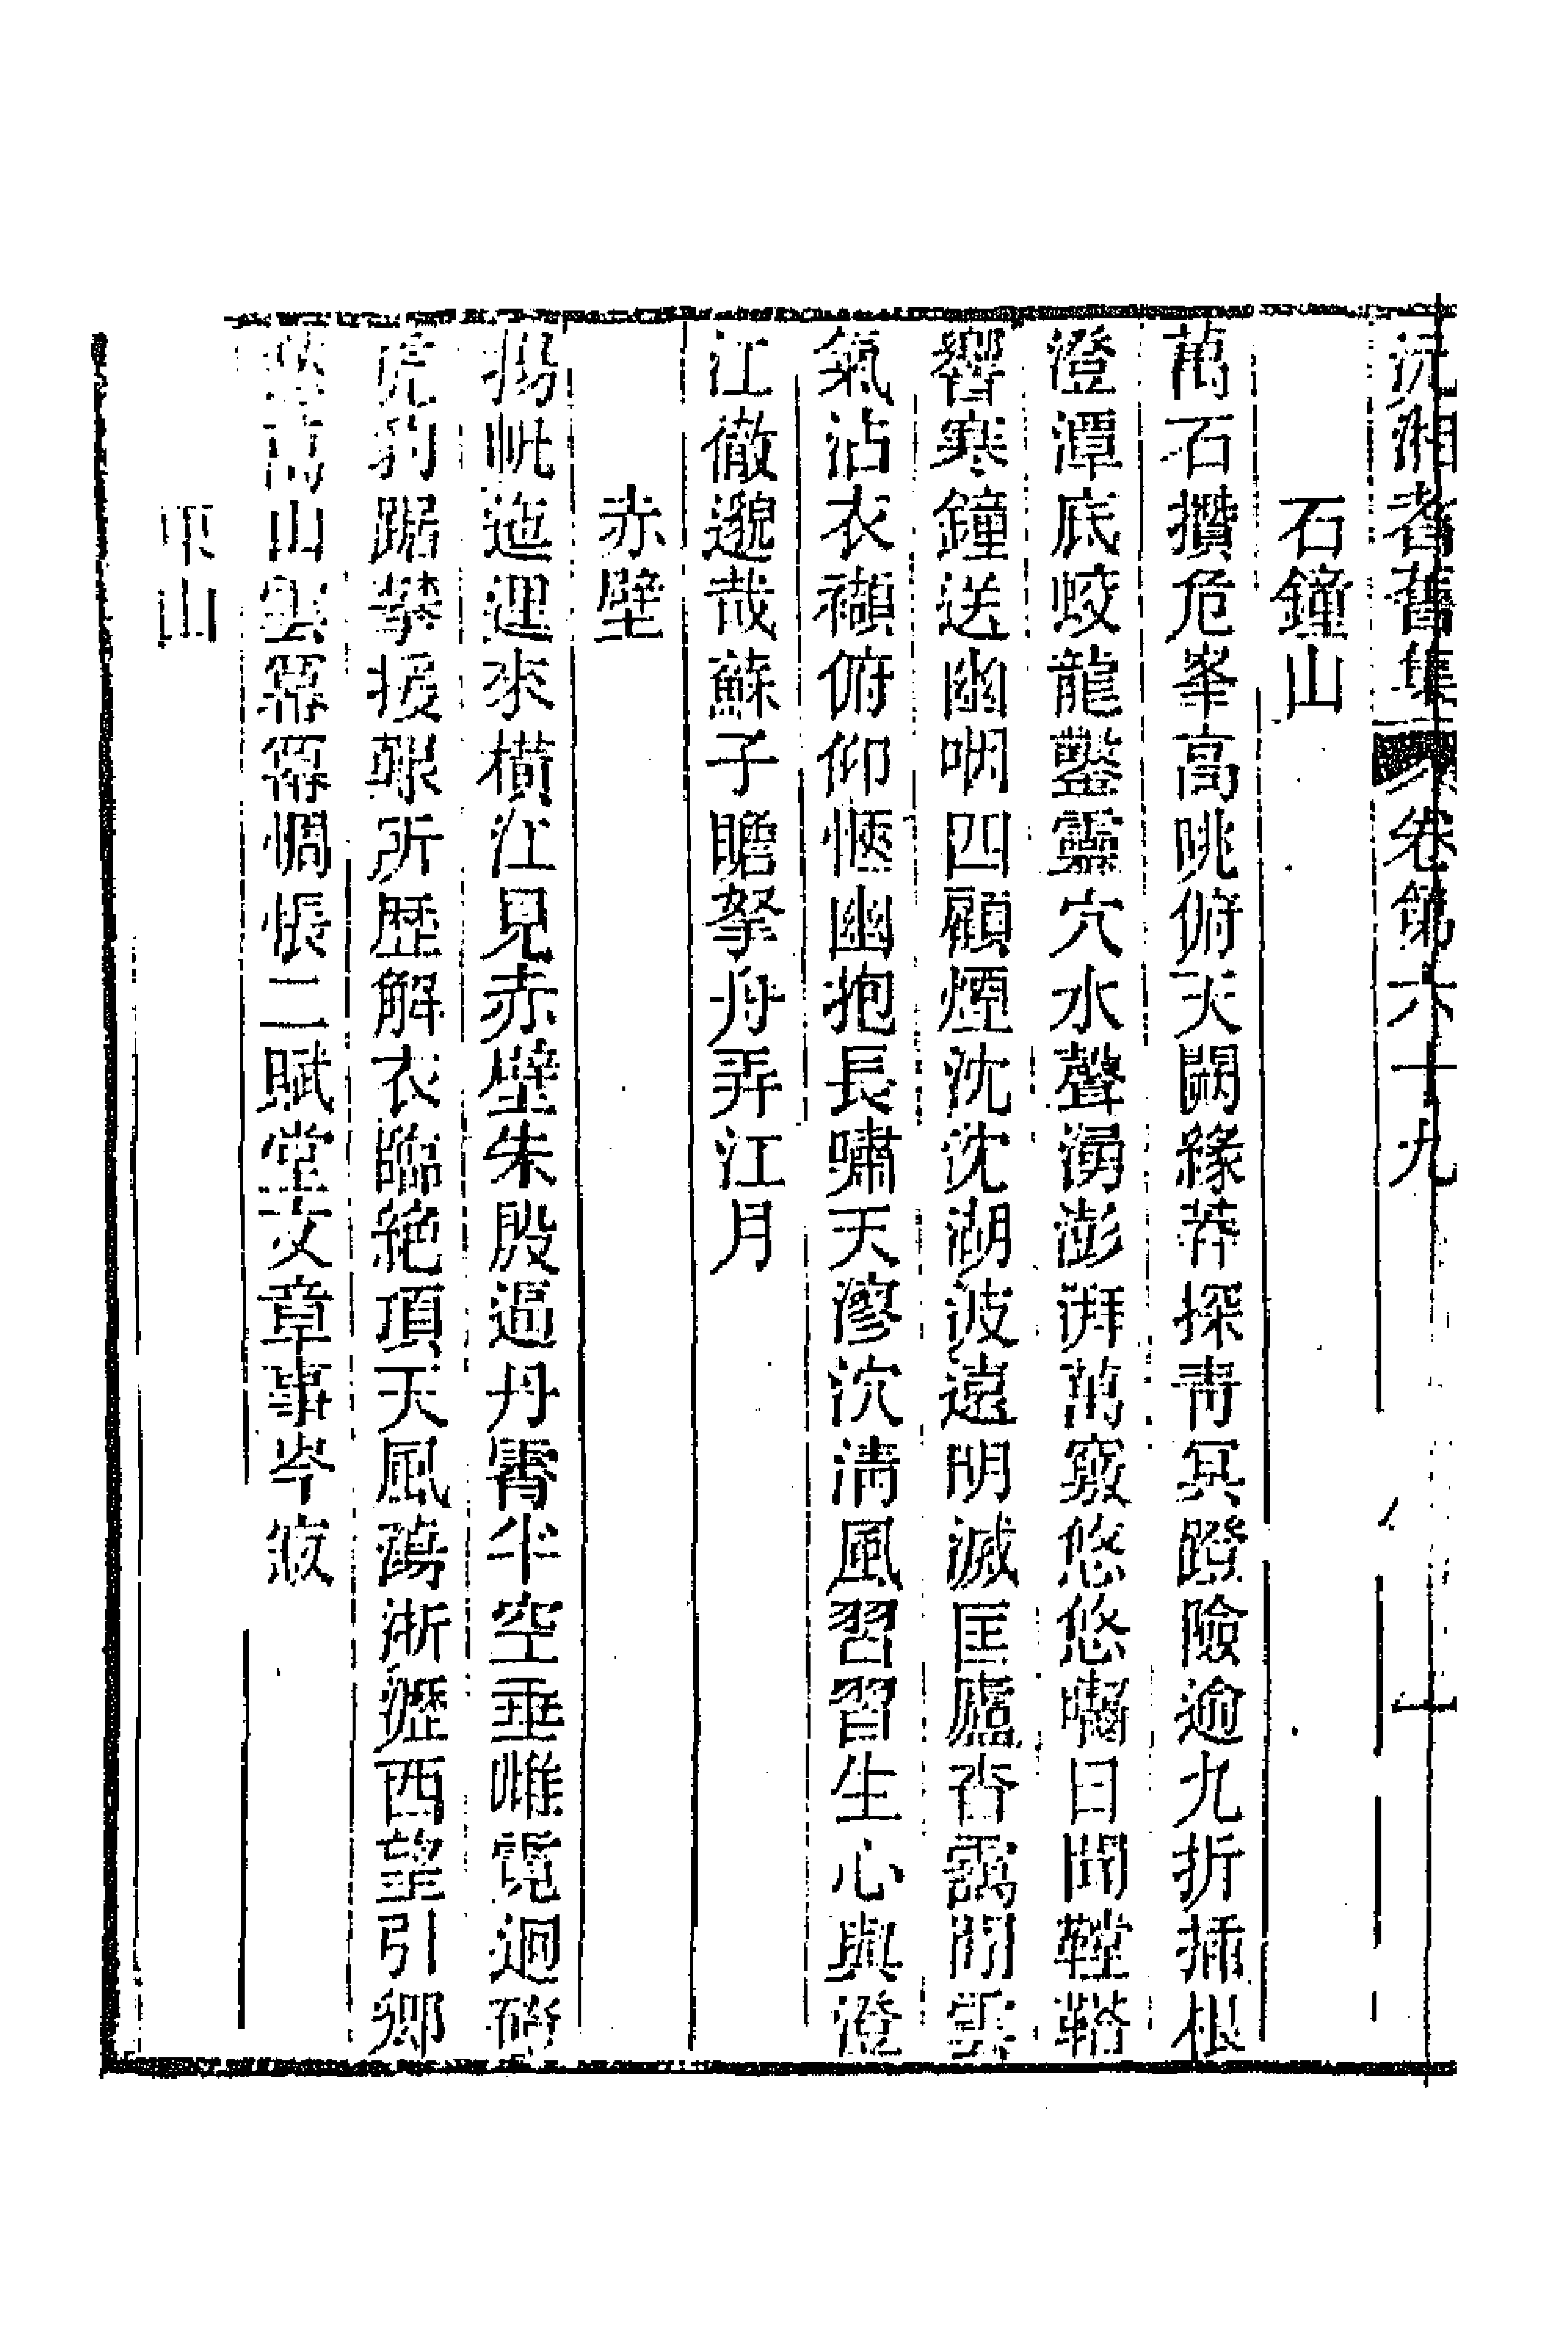 沅湘耆舊集 卷第六十九 十一
石鐘山
萬石攢危峯高眺俯天闕緣莽探青冥蹬險逾九折插根
澄潭底蛟龍鑿靈穴水聲湧澎湃萬竅悠悠囓日聞鞺鞳
響寒鐘送幽咽四顧煙沈沈湖波遠明滅匡廬杳靄閒雲
氣沾衣襭俯仰愜幽抱長嘯天漻泬清風習習生心與澄
江徹邈哉蘇子瞻拏舟弄江月
赤壁
揚帆迤逕來橫江見赤壁朱殷逼丹霄半空垂雌霓迴磴
虎豹踞攀援艱所歷解衣臨絕頂天風蕩淅瀝西望引鄉
高山雲冪冪惆悵二賦堂文章事岑寂
東山